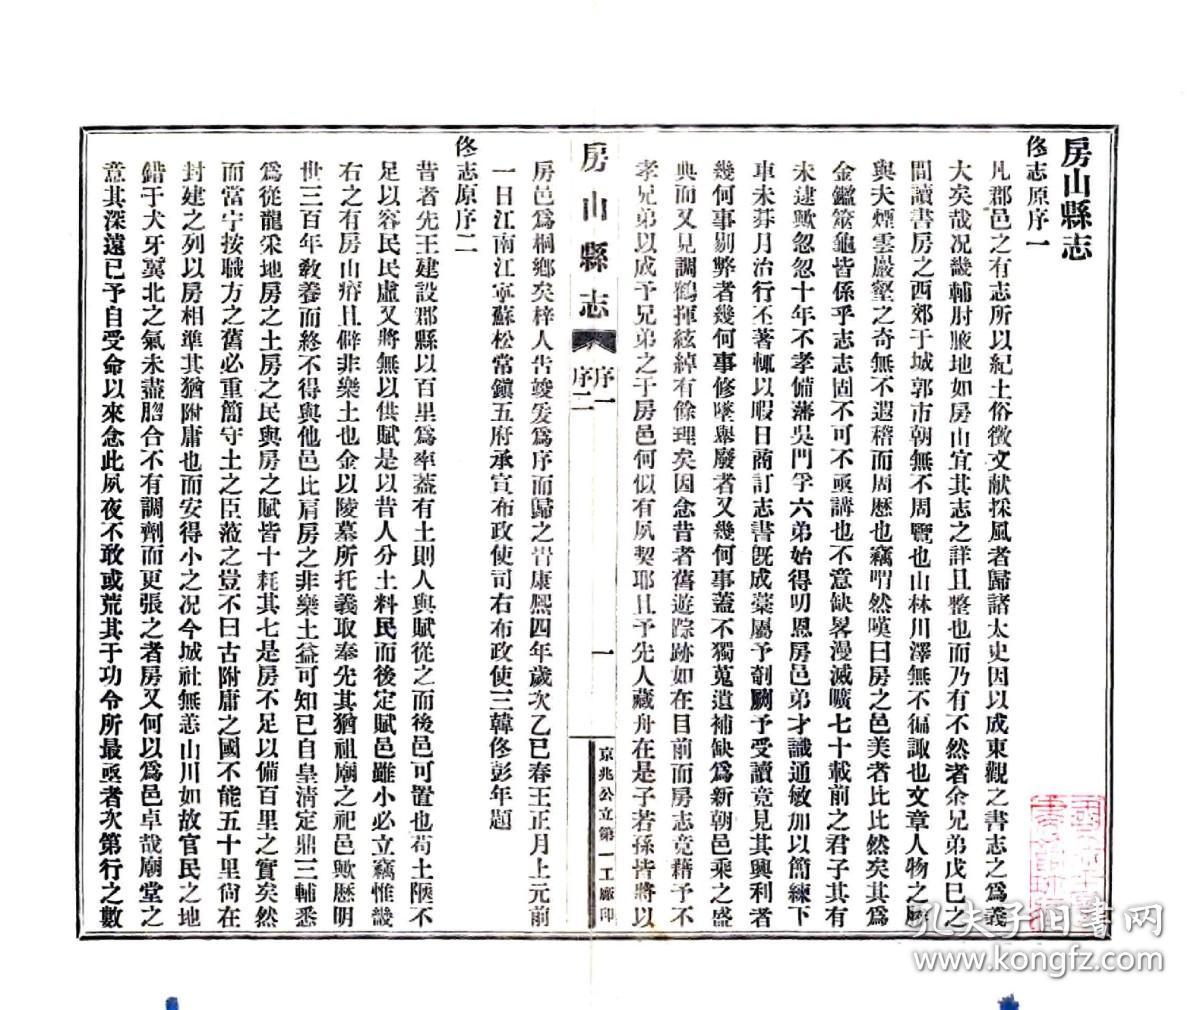 房山縣志
佟志原序一
凡郡邑之有志所以紀土俗徵文献採風者歸諸太史因以成東觀之書志之為義
大矣哉况畿輔肘腋地如房山宜其志之詳且整也而乃有不然者余兄弟戊巳之
間讀書房之西郊于城郭市朝無不周覽也山林川澤無不徧諏也文章人物之勝
與夫煙雲巖壑之奇無不遐稽而周歷也竊喟然嘆曰房之邑美者比比然矣其為
金鑑蓍龜皆係乎志志固不可不亟講也不意缺畧漫滅曠七十載前之君子其有
未逮歟忽忽十年不孝備藩吳門孚六弟始得叨恩房邑弟才識通敏加以簡練下
車未朞月治行丕著輒以暇日商訂志書旣成藁屬予剞劂予受讀竟見其興利者
幾何事剔弊者幾何事修墜舉廢者又幾何事蓋不獨蒐遺補缺為新朝邑乘之盛
典而又見調鶴揮絃綽有餘理矣因念昔者舊遊踪跡如在目前而房志竟藉予不
孝兄弟以成予兄弟之于房邑何似有夙契耶且予先人藏舟在是子若孫皆將以
房山縣志
序一
序二
一
京兆公立第一工廠印
房邑為桐鄉矣梓人告竣爰為序而歸之旹康熙四年歲次乙巳春王正月上元前
一日江南江寧蘇松常鎮五府承宣布政使司右布政使三韓佟彭年題
佟志原序二
昔者先王建設郡縣以百里為率葢有土則人與賦從之而後邑可置也苟土陿不
足以容民民虛又將無以供賦是以昔人分土料民而後定賦邑雖小必立竊惟畿
右之有房山瘠且僻非樂土也金以陵墓所托義取奉先其猶祖廟之祀邑歟歷明
世三百年敎養而終不得與他邑比肩房之非樂土益可知已自皇清定鼎三輔悉
為從龍采地房之土房之民與房之賦皆十耗其七是房不足以備百里之實矣然
而當宁按職方之舊必重簡守土之臣蒞之豈不曰古附庸之國不能五十里尙在
封建之列以房相準其猶附庸也而安得小之况今城社無恙山川如故官民之地
錯于犬牙冀北之氣未盡脗合不有調劑而更張之者房又何以為邑卓哉廟堂之
意其深遠已予自受命以來念此夙夜不敢或荒其于功令所最亟者次第行之數
孔夫子旧书网
www.kongfz.com